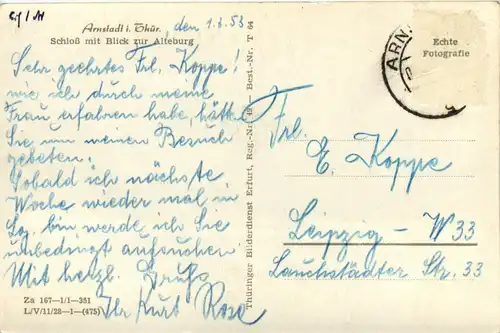 Cy/H
Arnstadt i. Thür.
Schloß mit Blick zur Alteburg
den 1.8.53
Sehr geehrtes Frl. Koppe!
wie ich durch meine
Frau erfahren habe, hätten
Sie um meinen Besuch
gebeten.
Sobald ich nächste
Woche wieder mal in
Lzg. bin werde ich Sie
unbedingt aufsuchen.
Mit herzl. Gruß
Ihr Kurt Rose
Za 167—1/1—351
L/V/11/28—1—(475)
Thüringer Bilderdienst Erfurt, Reg.-Nr. 49 — Best.-Nr. T 64
Echte
Fotografie
ARN
Frl.
E. Koppe
Leipzig - W 33
Lauchstädter Str. 33